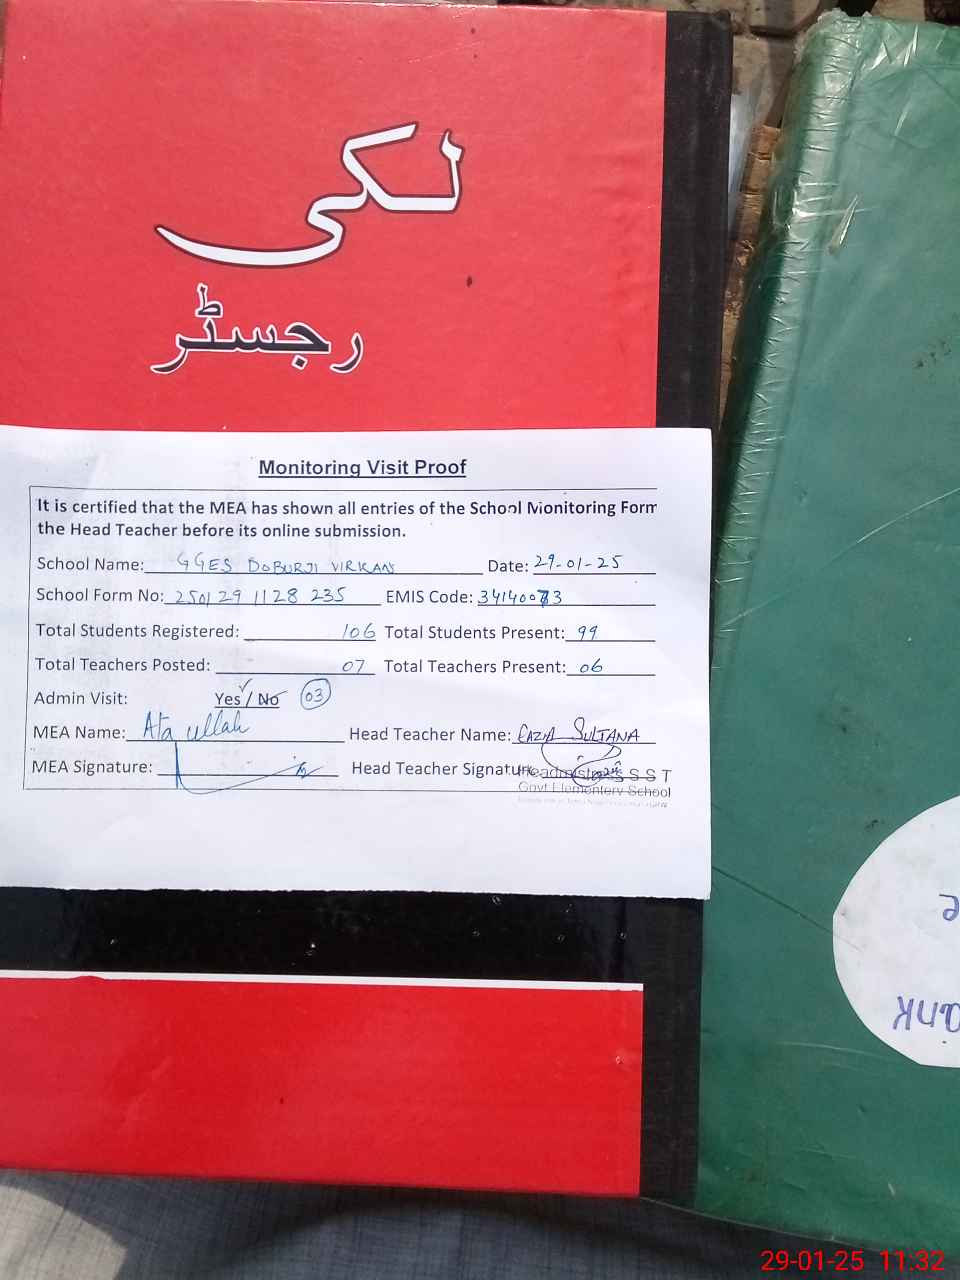 لکی
رجسٹر
Monitoring Visit Proof
It is certified that the MEA has shown all entries of the School Monitoring Form
the Head Teacher before its online submission.
School Name: GGES DOBURJI VIRKAN Date: 29-01-25
School Form No: 250129 1128 235 EMIS Code: 34140073
Total Students Registered: 106 Total Students Present: 99
Total Teachers Posted: 07 Total Teachers Present: 06
Admin Visit: Yes / No 03
MEA Name: Ata ullah Head Teacher Name: SULTANA
MEA Signature: Head Teacher Signature
Headmistress S S T
Govt Elementery School
ank
29-01-25 11:32